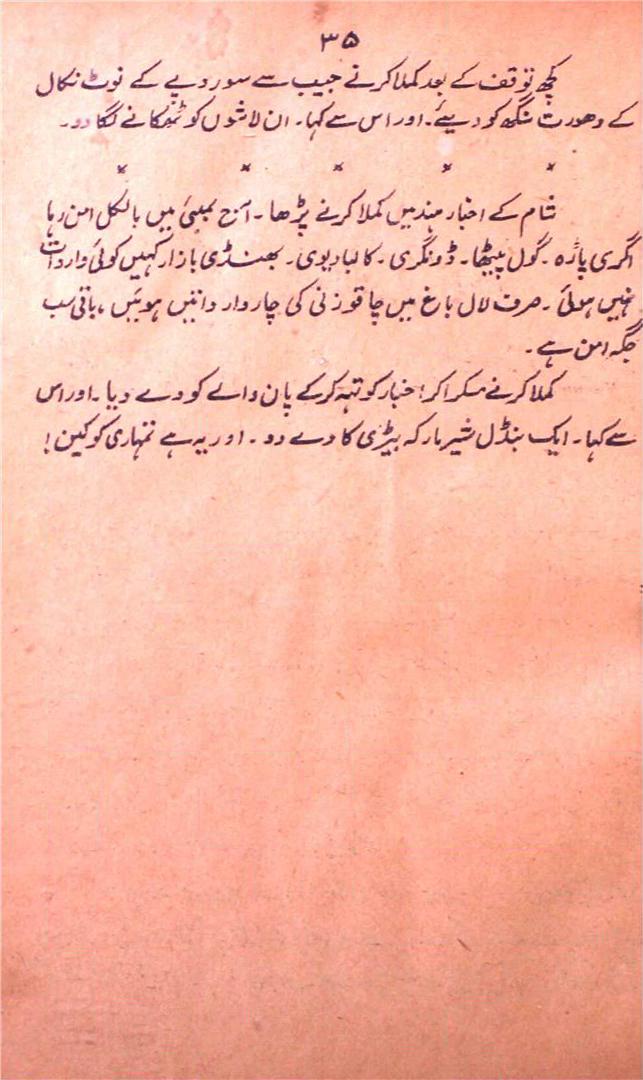 ۳۵
کچھ توقف کے بعد کملاکر نے جیب سے سو روپے کے نوٹ نکال
کے دھورت سنگھ کو دیئے۔ اور اس سے کہا۔ ان لاشوں کو ٹھکانے لگا دو۔
× × × × ×
شام کے اخبار ہند میں کملاکر نے پڑھا۔ آج بمبئی میں بالکل امن رہا
اگری پاڑہ۔ گول پیٹھا۔ ڈونگری۔ کالبادیوی۔ بھنڈی بازار کہیں کوئی واردات
نہیں ہوئی۔ صرف لال باغ میں چاقو زنی کی چار وارداتیں ہوئیں، باقی سب
جگہ امن ہے۔
کملاکر نے مسکرا کر اخبار کو تہہ کر کے پان والے کو دے دیا۔ اور اس
سے کہا۔ ایک بنڈل شیر مارکہ بیڑی کا دے دو۔ اور یہ ہے تمہاری کوکین!